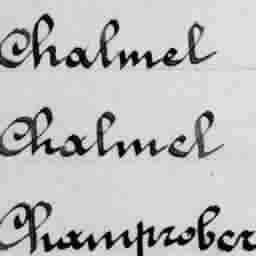 Chalmel
Chalmel
Champrober